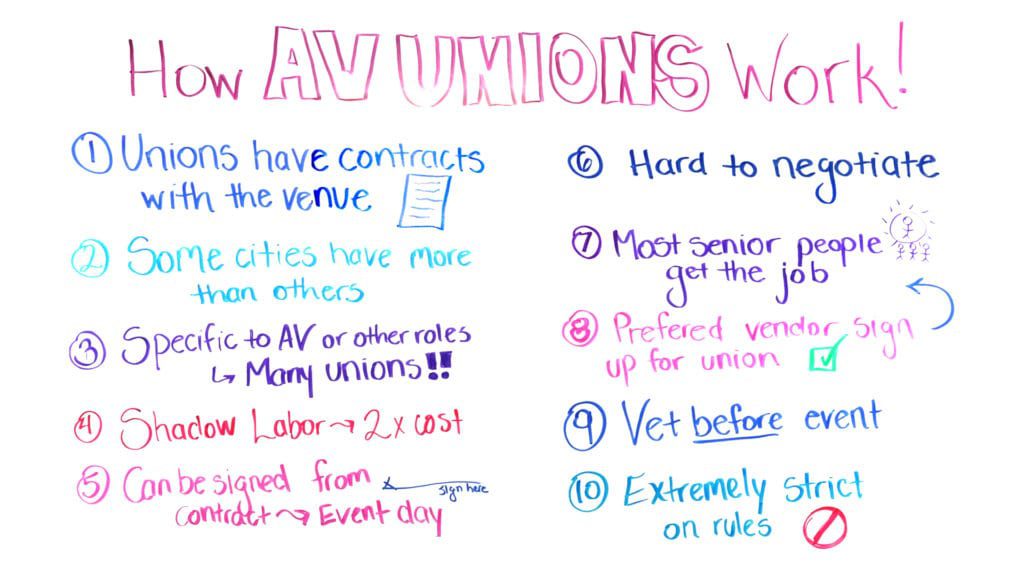 How AV UNIONS Work!
① Unions have contracts
with the venue
② Some cities have more
than others
③ Specific to AV or other roles
↳ Many unions!!
④ Shadow Labor → 2x cost
⑤ Can be signed from
x sign here
contract → Event day
⑥ Hard to negotiate
⑦ Most senior people
get the job
⑧ Prefered vendor sign
up for union
⑨ Vet before event
⑩ Extremely strict
on rules